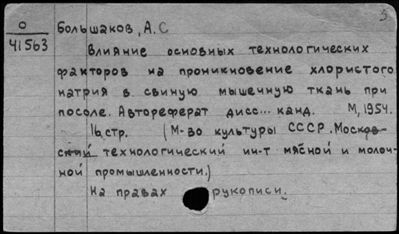 5
О
41563
Большаков, А.С
Влияние основных технологических
факторов на проникновение хлористого
натрия в свиную мышечную ткань при
посоле. Автореферат дисс... канд. М, 1954.
16 стр. (М-во культуры СССР. Москов-
ский технологический ин-т мясной и молоч-
ной промышленности.)
На правах рукописи.